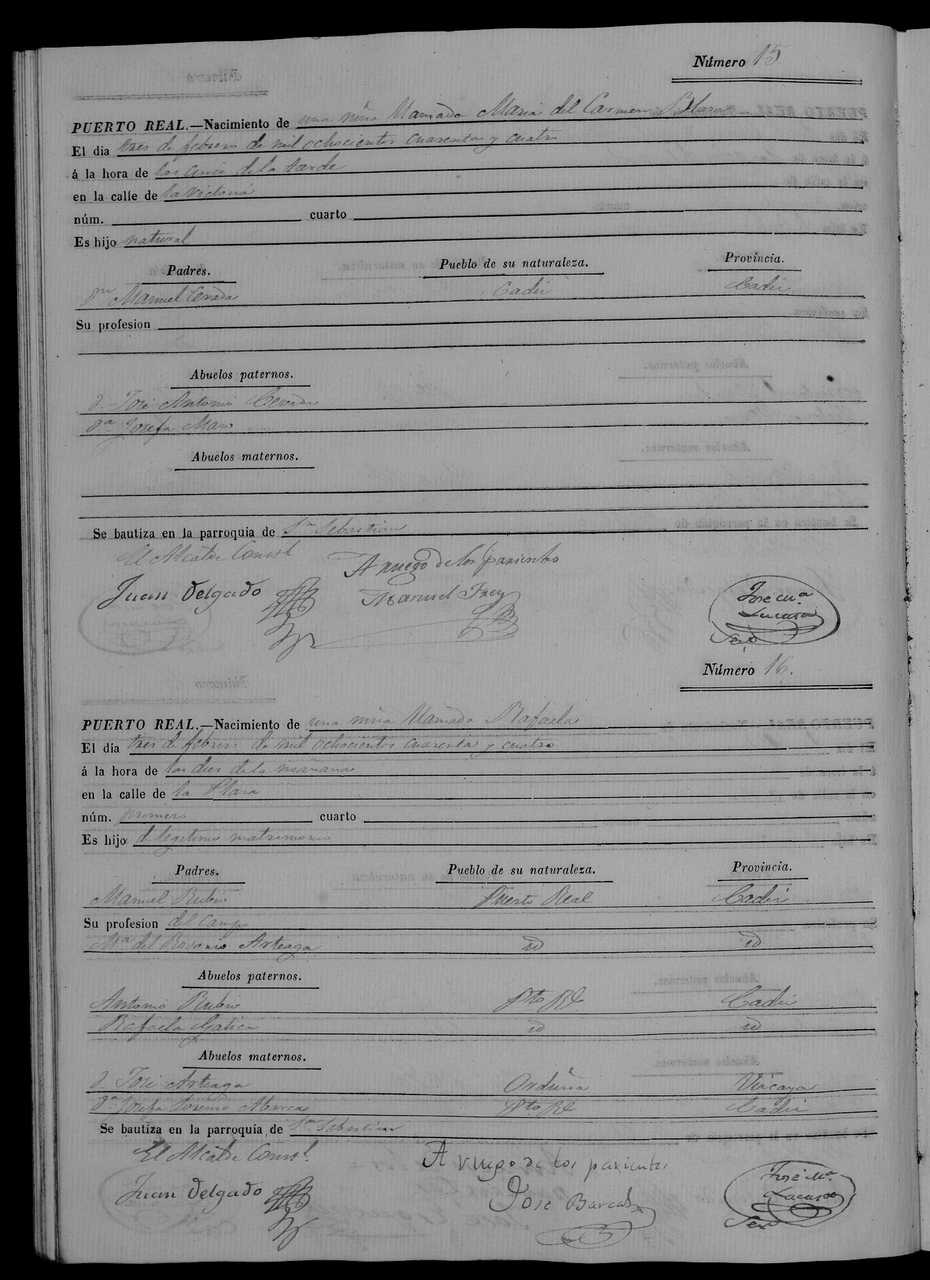 Número 15
PUERTO REAL.—Nacimiento de una niña llamada Maria del Carmen Blasa
El dia tres de febrero de mil ochocientos cuarenta y cuatro
á la hora de las cinco de la tarde
en la calle de la Victoria
núm. cuarto
Es hijo natural
Padres. Pueblo de su naturaleza. Provincia.
Manuel Cadiz Cadiz
Su profesion
Abuelos paternos.
Dn José Antonio
Da Josefa
Abuelos maternos.
Se bautiza en la parroquia de Sn Sebastian
El Alcalde Const.l
A ruego de los parientes
Juan Delgado Manuel José Ma
Srio
Número 16.
PUERTO REAL.—Nacimiento de una niña llamada Rafaela
El día tres de febrero de mil ochocientos cuarenta y cuatro
á la hora de las diez de la mañana
en la calle de la Plaza
núm. primero cuarto
Es hijo de legitimo matrimonio
Padres. Pueblo de su naturaleza. Provincia.
Manuel Rubio Puerto Real Cadiz
Su profesion del Campo
Ma del Rosario Arteaga id id
Abuelos paternos.
Antonio Rubio Pto Rl Cadiz
Rafaela Gatica id id
Abuelos maternos.
Dn José Arteaga Orduña Viscaya
Da Josefa Pto Rl Cadiz
Se bautiza en la parroquia de Sn Sebastian
El Alcalde Const.l
A ruego de los parientes
Juan Delgado José José Ma
Srio